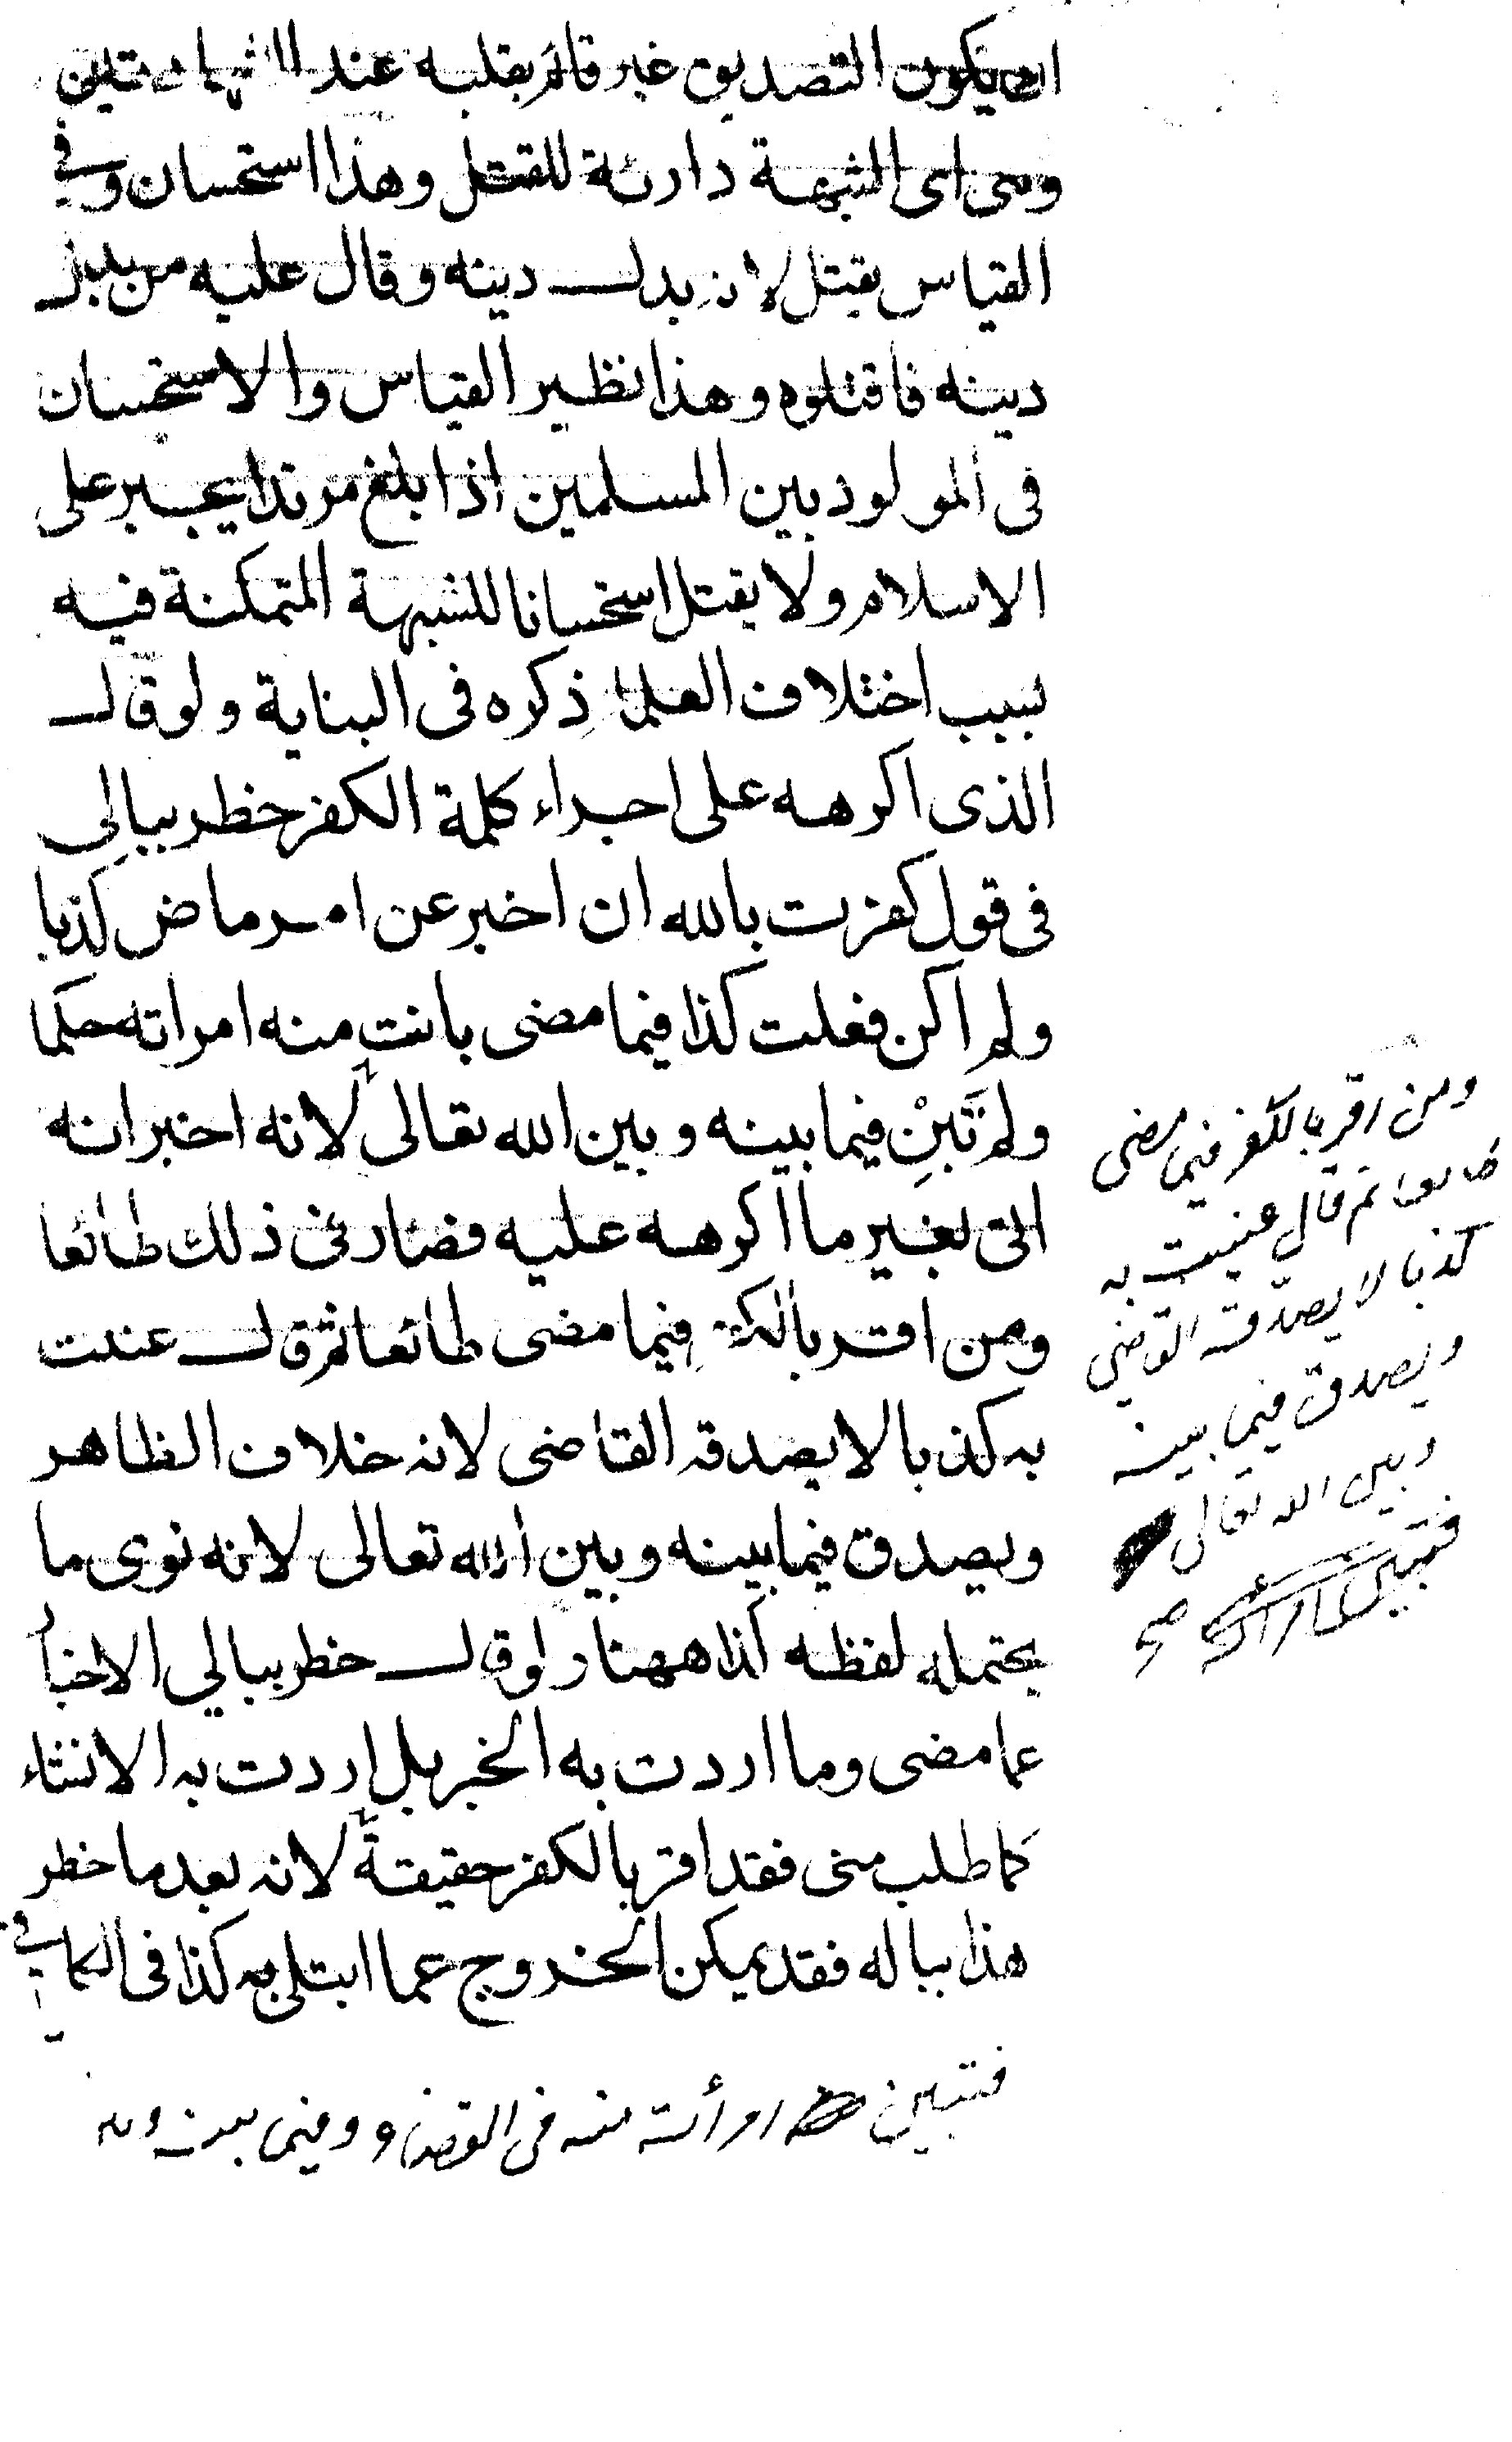 ان يكون التصديق غير قائم بقلبه عند الشهادتين
وهى اى الشبهة دارئة للقتل وهذا استحسان وفى
القياس يقتل لانه بدل دينه وقال عليه من بدل
دينه فاقتلوه وهذا نظير القياس والاستحسان
فى المولود بين المسلمين اذا بلغ مرتدا يجبر على
الاسلام ولا يقتل استحسانا للشبهة المتمكنة فيه
بسبب اختلاف العلما ذكره فى البناية ولو قال
الذى اكرهه على اجراء كلمة الكفر خطر ببالى
فى قول كفرت بالله ان اخبر عن امر ماض كذبا
ولم اكن فعلت كذا فيما مضى بانت منه امراته حكما
ولم تَبِنْ فيما بينه وبين الله تعالى لانه اخبر انه
اتى بغير ما اكرهه عليه فصار فى ذلك طائعا
ومن اقر بالكفر فيما مضى طائعا ثم قال عنيت
به كذبا لا يصدقه القاضى لانه خلاف الظاهر
ويصدق فيما بينه وبين الله تعالى لانه نوى ما
يحتمله لفظه كذا ههنا ولو قال خطر ببالي الاخبار
عما مضى وما اردت به الخبر بل اردت به الانشاء
كما طلب منى فقد اقر بالكفر حقيقة لانه بعد ما خطر
هذا بباله فقد يمكن الخروج عما ابتلى به كذا فى الكافى
ومن اقر بالكفر فيما مضى
طائعا ثم قال عنيت به
كذبا لا يصدقه القاضى
ويصدق فيما بينه
وبين الله تعالى
فتبين امرأته صح
فتبين امرأته منه فى القضاء وفيما بينه